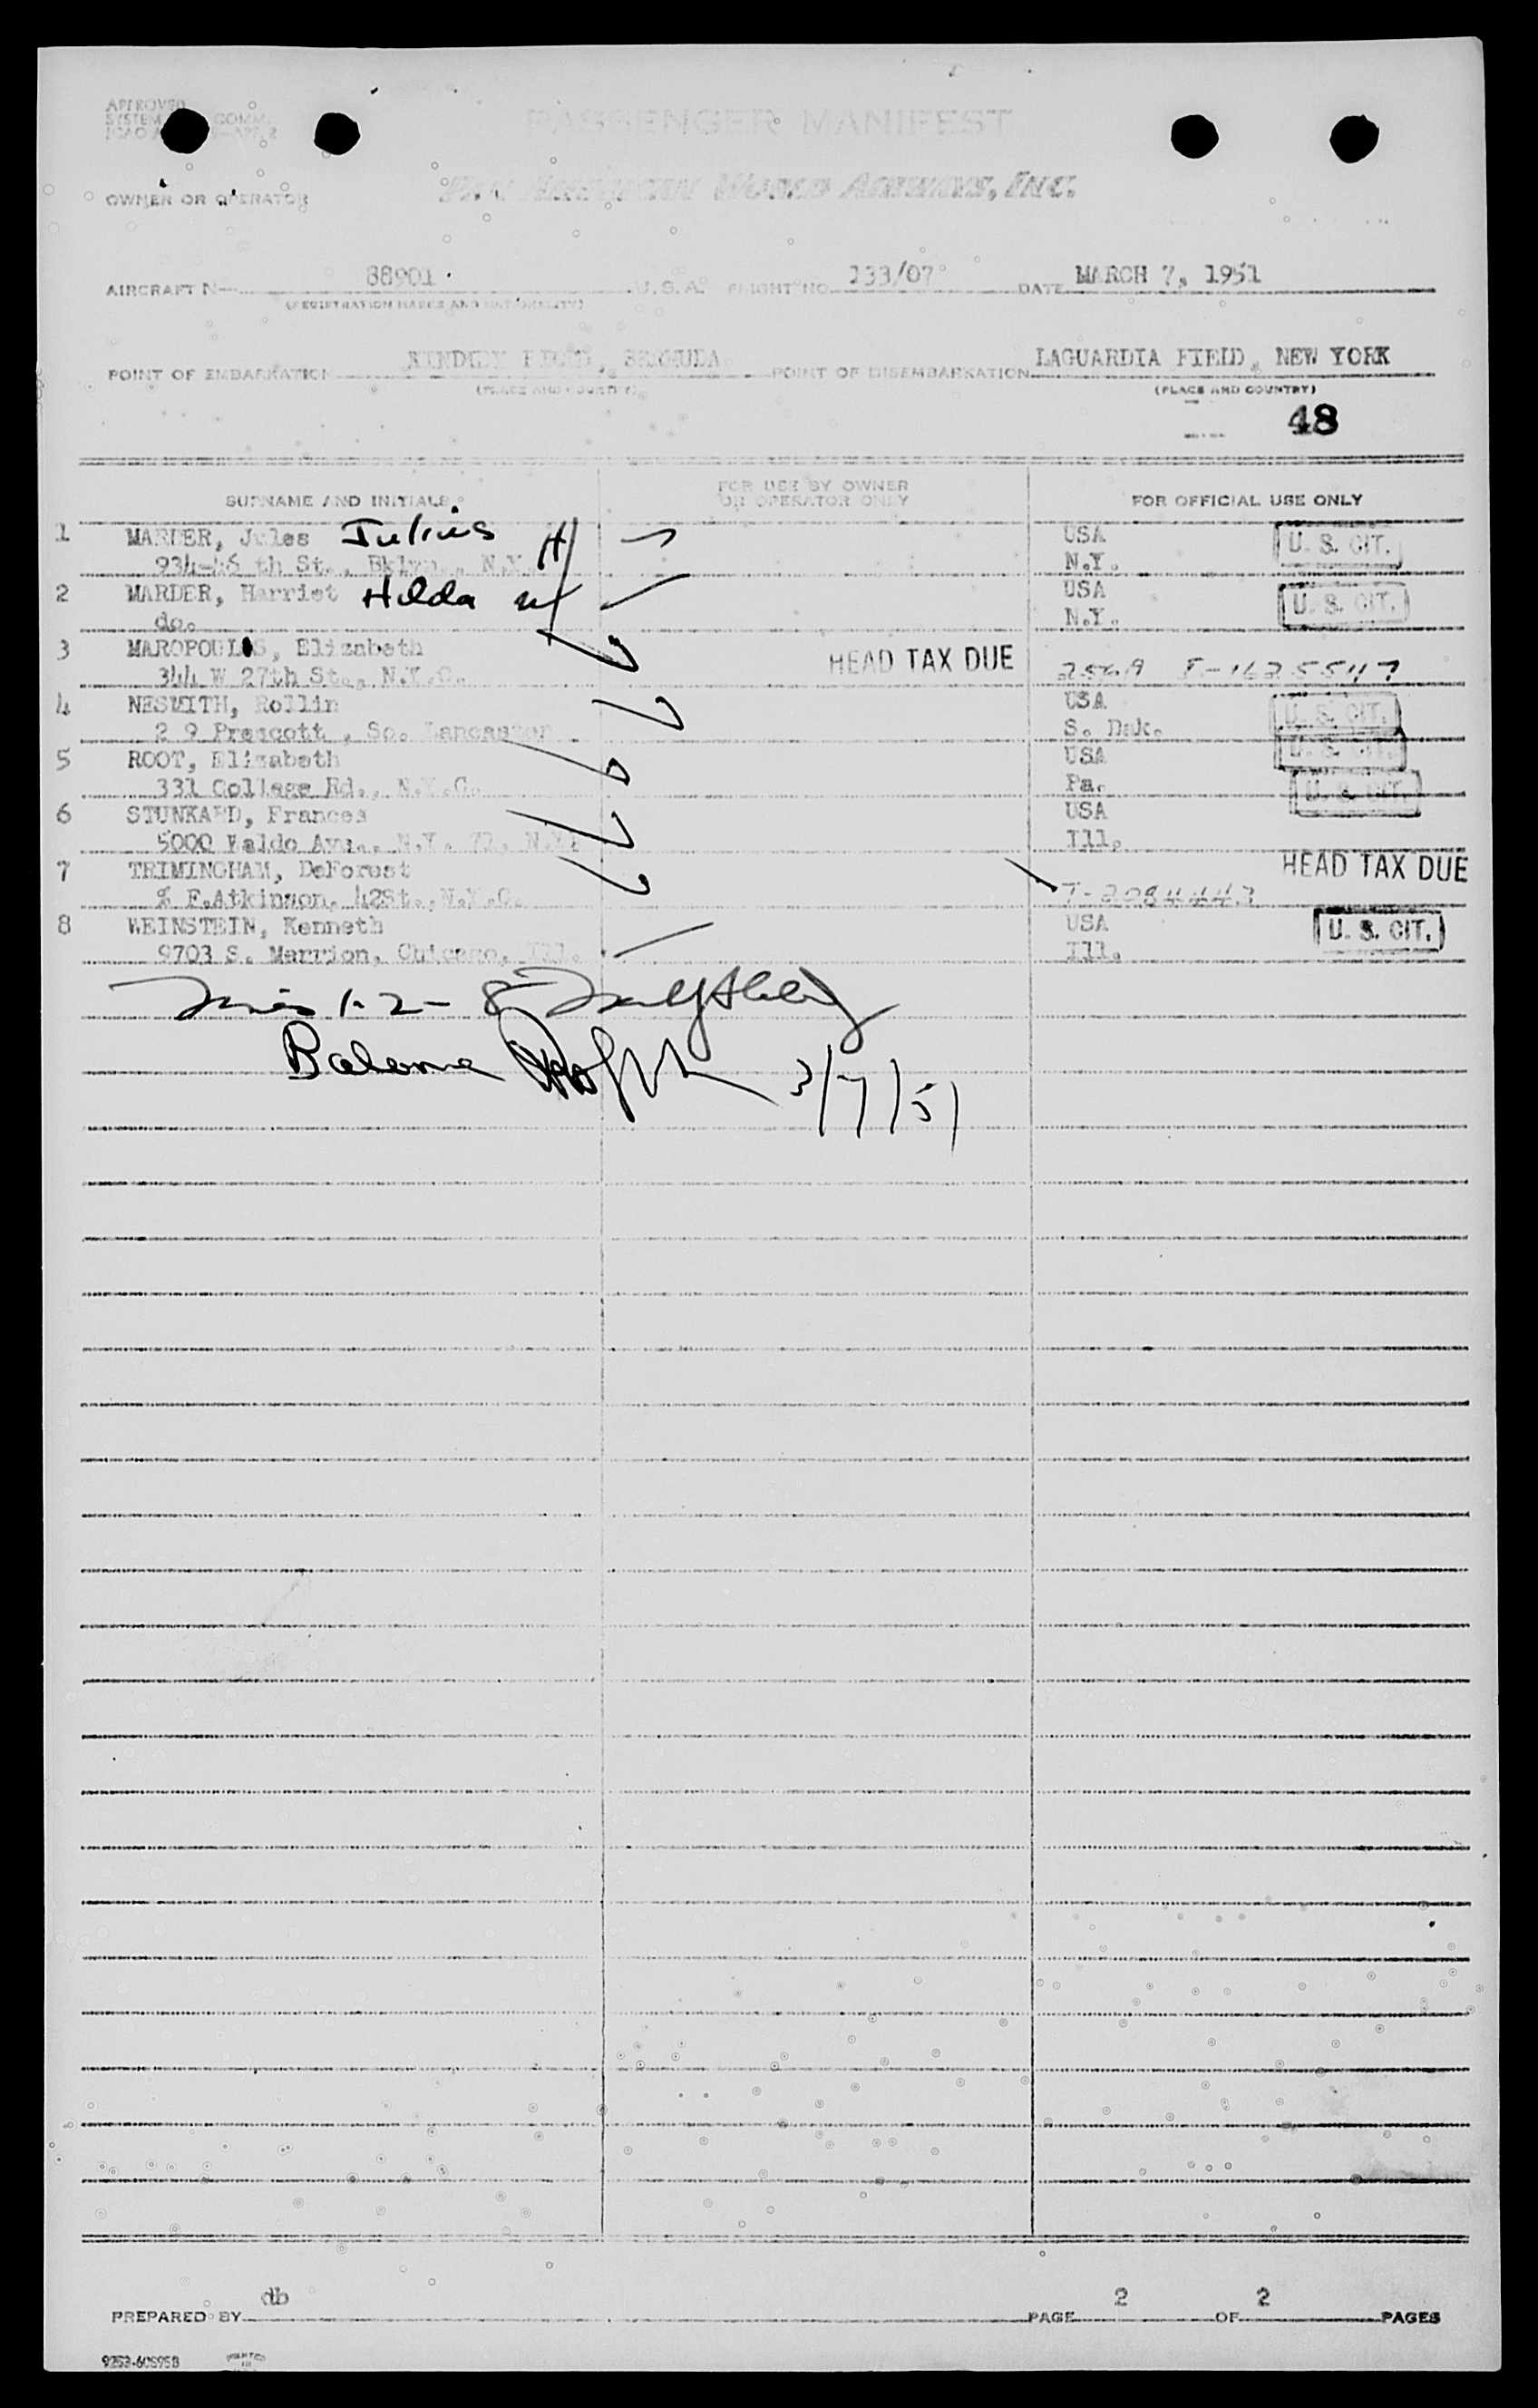 APPROVED
SYSTEM COMM.
PASSENGER MANIFEST
OWNER OR OPERATOR PAN AMERICAN WORLD AIRWAYS, INC.
AIRCRAFT N— 88901 U.S.A. FLIGHT NO. 133/07 DATE MARCH 7, 1951
(REGISTRATION MARKS AND NATIONALITY)
POINT OF EMBARKATION KINDLEY FIELD, BERMUDA POINT OF DISEMBARKATION LAGUARDIA FIELD, NEW YORK
(PLACE AND COUNTRY) (PLACE AND COUNTRY)
48
SURNAME AND INITIALS FOR USE BY OWNER OR OPERATOR ONLY FOR OFFICIAL USE ONLY
1 MARDER, Jules Julius H USA U. S. CIT.
934-46 th St., Bklyn., N.Y. N.Y.
2 MARDER, Harriet Hilda W USA U. S. CIT.
do. N.Y.
3 MAROPOULOS, Elizabeth HEAD TAX DUE
344 W 27th St., N.Y.C. I-1625547
4 NESMITH, Rollin USA U. S. CIT.
2 9 Prescott, So. Lancaster S. Dak.
5 ROOT, Elizabeth USA U. S. CIT.
331 College Rd., N.Y.C. Pa.
6 STUNKARD, Frances USA U. S. CIT.
5000 Waldo Ave., N.Y. 71, N.Y. Ill.
7 TRIMINGHAM, DeForest HEAD TAX DUE
% F.Atkinson, 42St., N.Y.C. I-2084443
8 WEINSTEIN, Kenneth USA U. S. CIT.
9703 S. Marrion, Chicago, Ill. Ill.
1-2- 8
Balance 3/7/51
PREPARED BY db PAGE 2 OF 2 PAGES
9253-60595B PRINTED IN